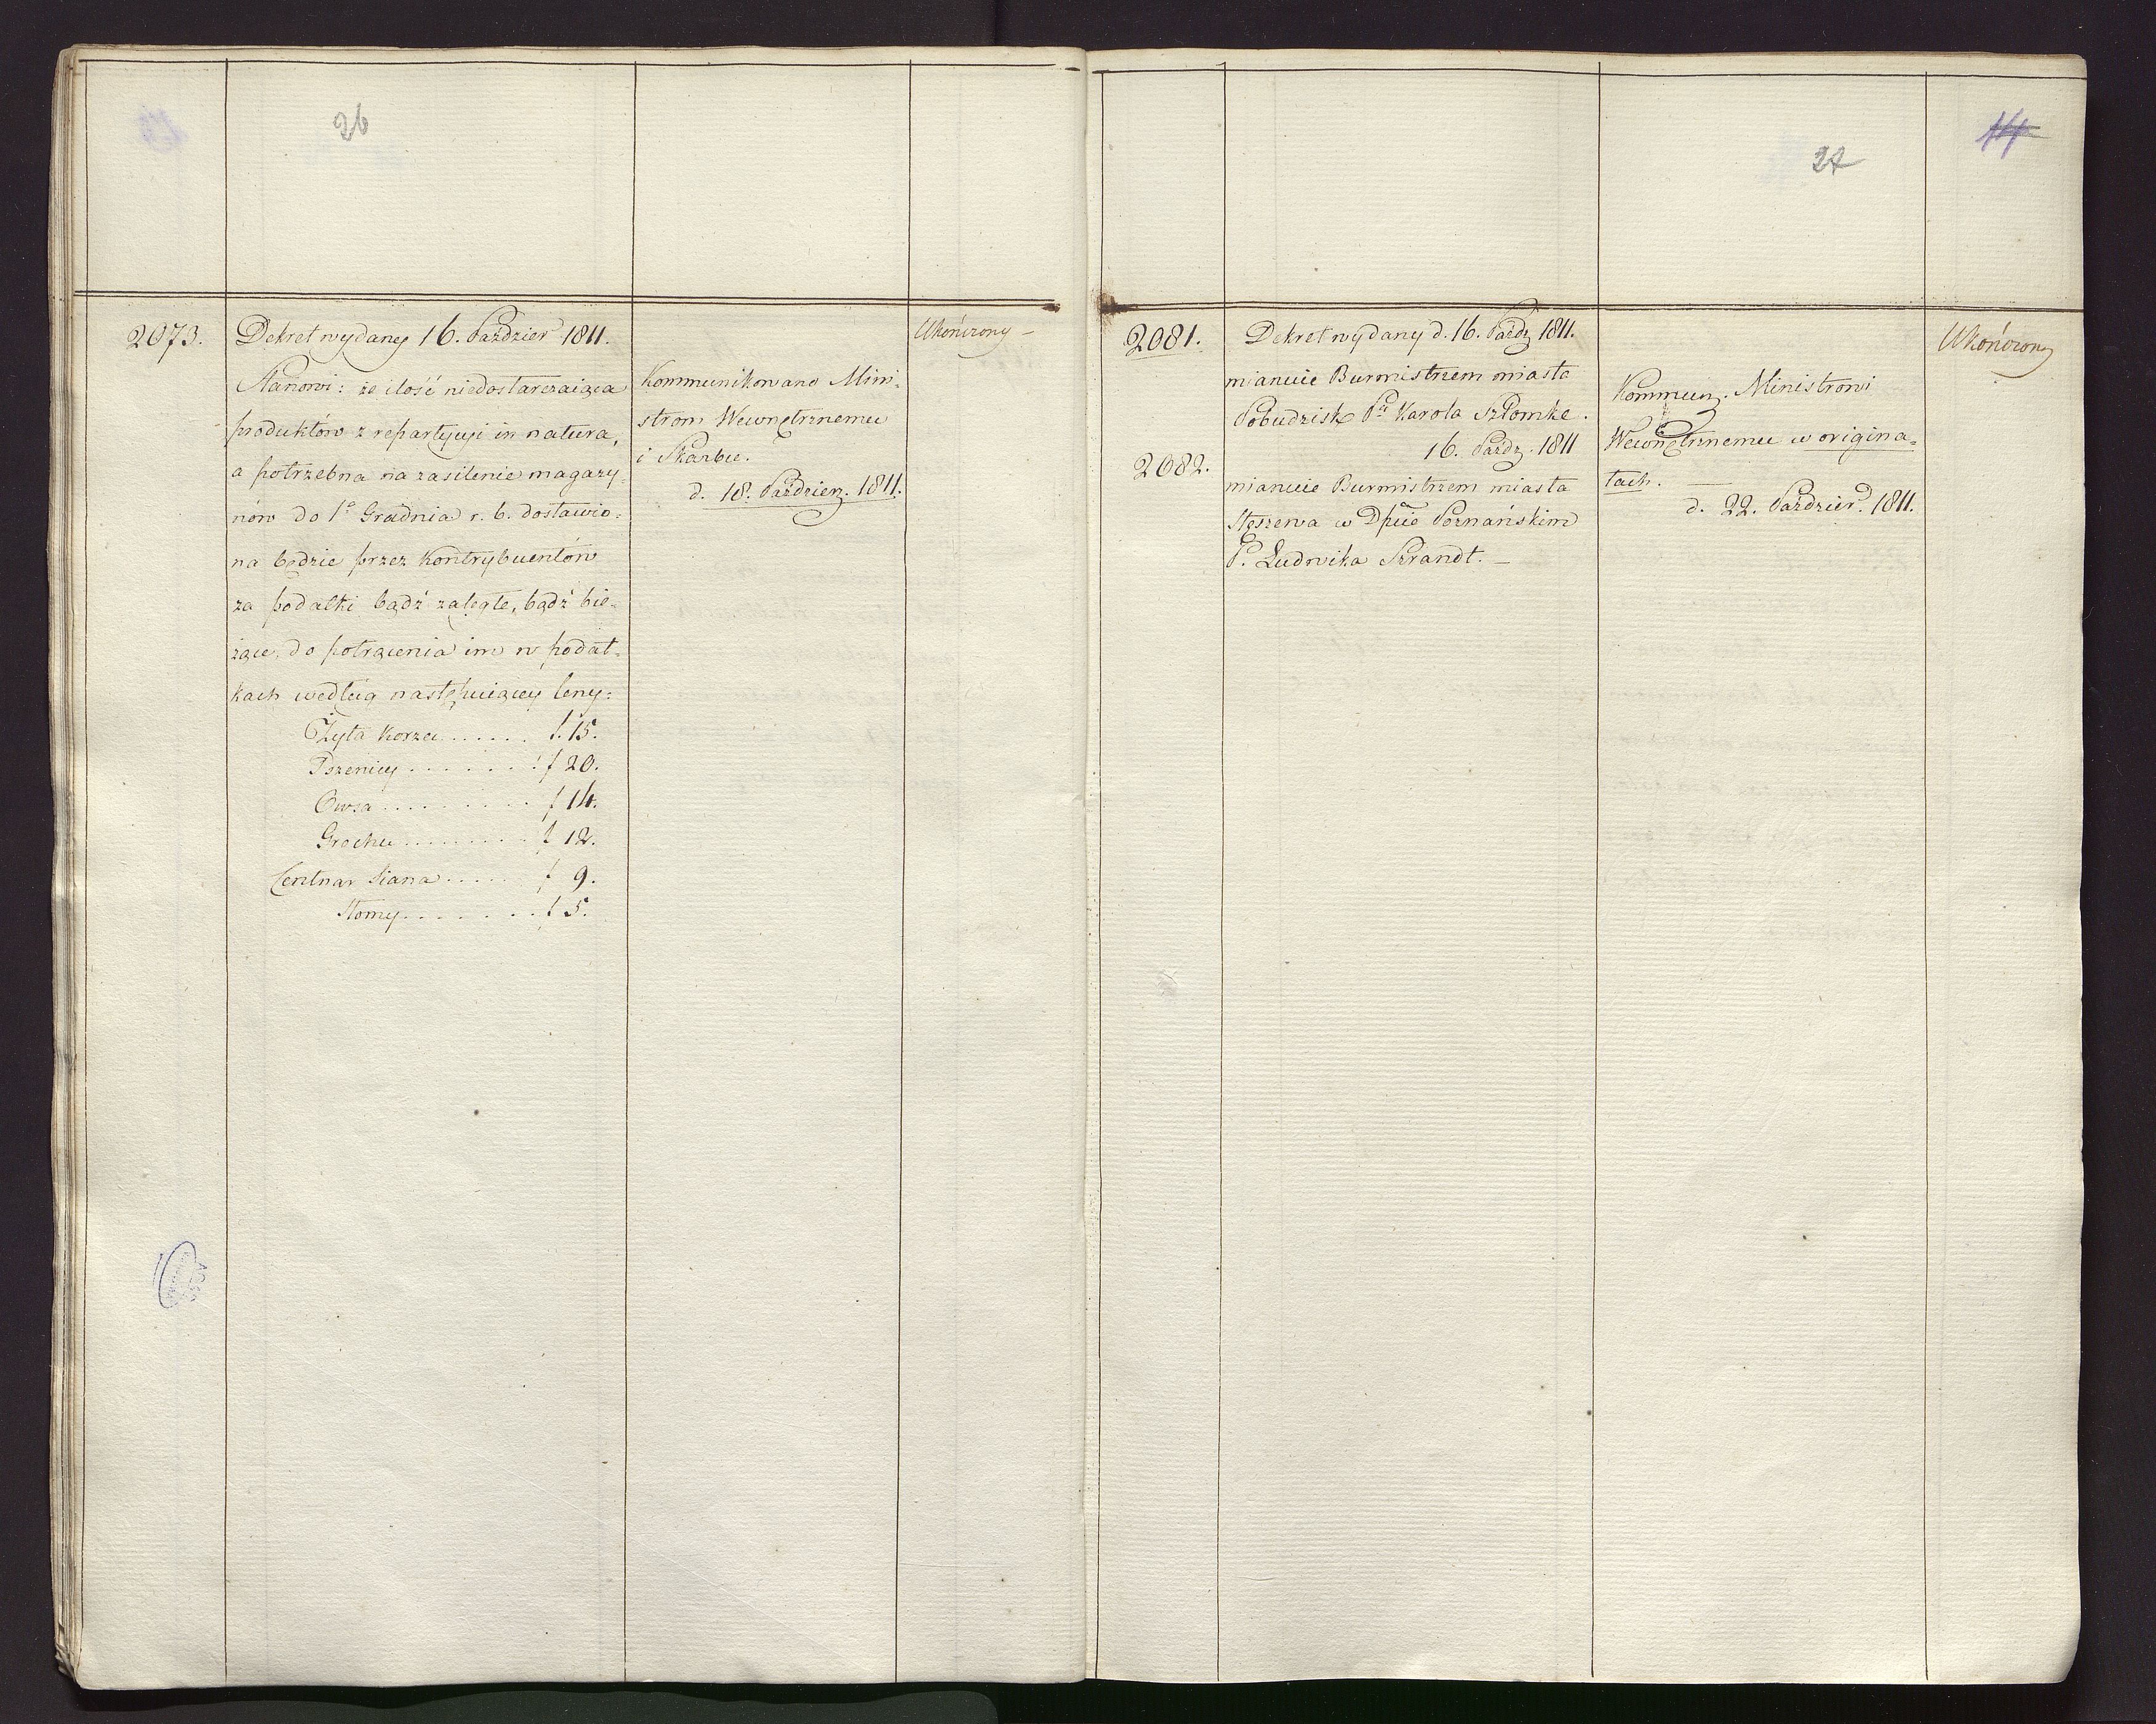 26
2073.
Dekret wydany 16. Paździer 1811.
Stanowi: że ilość niedostarczaiąca
produktów z repartycyi in natura,
a potrzebna na zasilenie magazy-
nów do 1o Grudnia r. b. dostawio-
na będzie przez Kontrybuentów
za podatki bądź zaległe, bądź bie-
żące, do potrącenia im w podat-
kach według następuiącey Ceny:
Żyta Korzec ...... f. 15.
Pszenicy ...... f 20.
Owsa ......... f 14.
Grochu ........ f 12.
Centnar Siana ..... f 9.
Słomy ....... f 5.
Kommunikowano Mini-
strom Wewnętrznemu
i Skarbu.
d. 18. Paździer. 1811.
Ukończony —
27
14
2081.
Dekret wydany d. 16. Paźdz 1811.
mianuie Burmistrzem miasta
Pobudzisk Pa Karola Szlomke.
2082.
16. Paźdz. 1811
mianuie Burmistrzem miasta
Stęszewa w Dpcie Poznańskim
P. Ludwika Szrandt. —
Kommun. Ministrowi
Wewnętrznemu w origina-
łach. —
d. 22. Paździer. 1811.
Ukończony